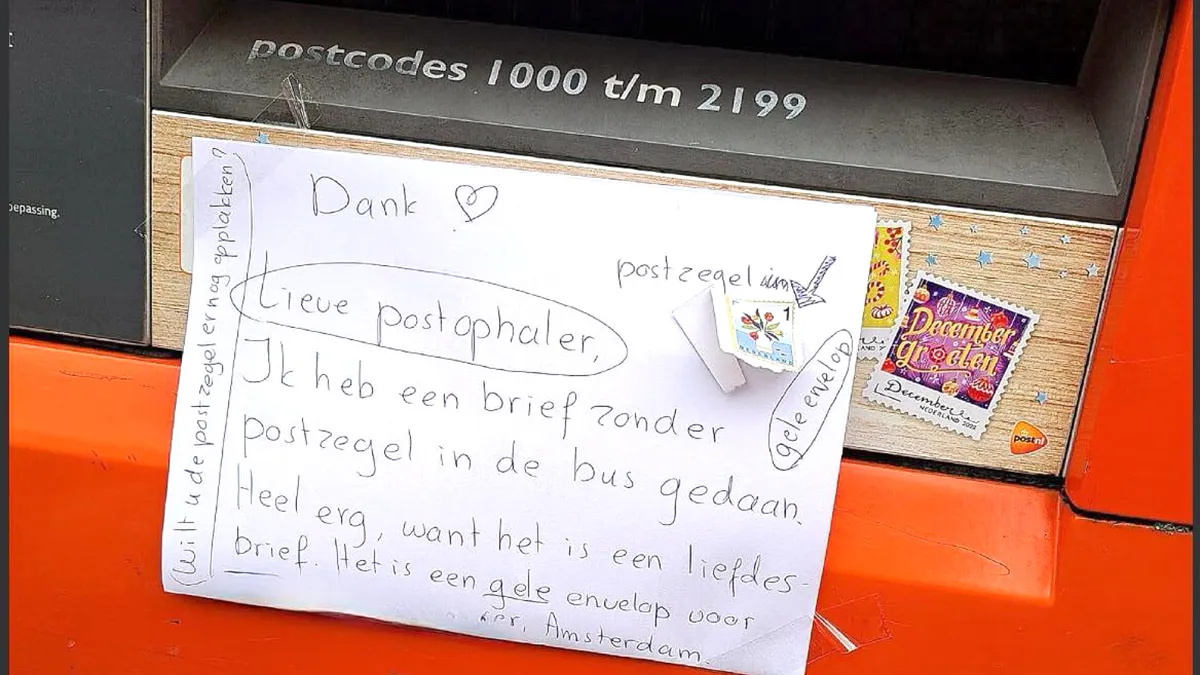 postcodes 1000 t/m 2199
epassing.
Dank
postzegel
Lieve postophaler,
Ik heb een brief zonder
postzegel in de bus gedaan.
Heel erg, want het is een liefdes-
brief. Het is een gele envelop voor
Amsterdam.
(Wilt u de postzegel er nog opplakken?
gele envelop
1
NEDERLAND
December
groeten
December
NEDERLAND
postnl